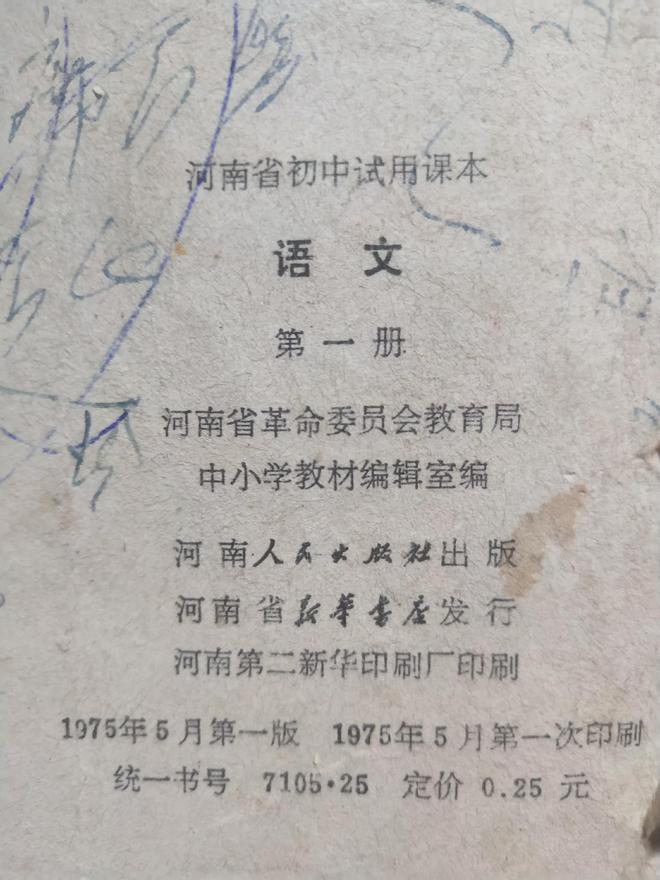 河南省初中试用课本
语文
第一册
河南省革命委员会教育局
中小学教材编辑室编
河南人民出版社出版
河南省新华书店发行
河南第二新华印刷厂印刷
1975年5月第一版 1975年5月第一次印刷
统一书号 7105·25 定价 0.25 元